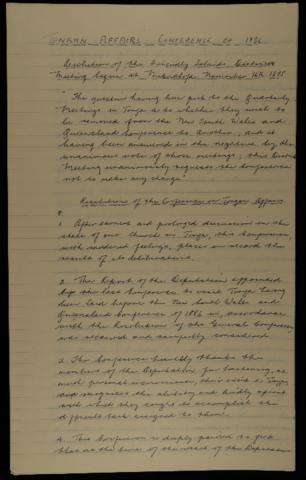 TONGAN AFFAIRS CONFERENCE OF 1886
Resolution of the Friendly Islands District
Meeting begun at Nukualofa November 16th 1885
"The question having been put to the Quarterly
Meetings in Tonga as to whether they wish to
be removed from the New South Wales and
Queensland Conference to another, and it
having been answered in the negative by the
unanimous vote of those meetings, this District
Meeting unanimously requests the Conference
not to make any change"
Resolutions of the Conference on Tongan Affairs
1 After earnest and prolonged discussion on the
state of our Church in Tonga, this Conference,
with saddened feelings, places on record the
results of its deliberations.
2. The Report of the Deputation appointed
by the last Conference to visit Tonga having
been laid before the New South Wales and
Queensland Conference of 1886 in accordance
with the Resolution of the General Conference,
was received and carefully considered
3. The Conference heartily thanks the
members of the Deputation for hastening, at
much personal inconvenience, their visit to Tonga,
and recognises the ability and kindly spirit
with which they sought to accomplish the
difficult task assigned to them.
4. This Conference is deeply pained to find
that at the time of the visit of the Deputation